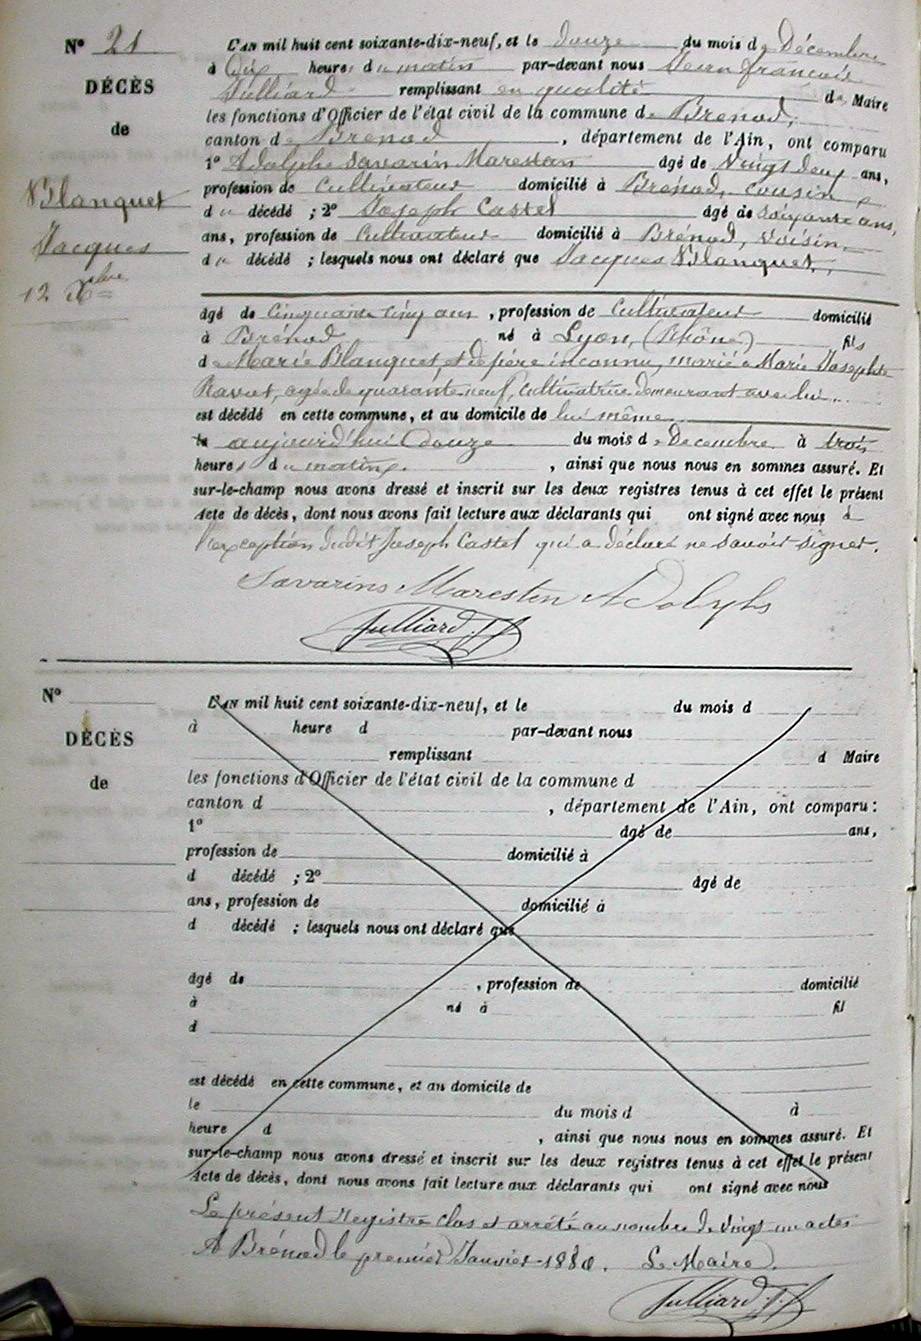 N° 21
DÉCÈS
de
Blanquet
Jacques
12 Xbre
L'AN mil huit cent soixante-dix-neuf, et le douze du mois de Décembre
à Dix heures du matin par-devant nous Jean françois
Julliard remplissant en qualité de Maire
les fonctions d'Officier de l'état civil de la commune de Brénod,
canton de Brénod, département de l'Ain, ont comparu
1° Adolphe Savarin Marestan âgé de Vingt deux ans,
profession de Cultivateur domicilié à Brénod, cousin
du décédé ; 2° Joseph Castel âgé de soixante ans,
ans, profession de Cultivateur domicilié à Brénod, voisin,
du décédé ; lesquels nous ont déclaré que Jacques Blanquet,
âgé de Cinquante cinq ans, profession de Cultivateur domicilié
à Brénod né à Lyon, (Rhône) fils
de Marie Blanquet, et de père inconnu, marié à Marie Josephte
Ravet, agée de quarante neuf, cultivatrice demeurant avec lui
est décédé en cette commune, et au domicile de lui même
le aujourd'hui douze du mois de Décembre à trois
heures du matin, ainsi que nous nous en sommes assuré. Et
sur-le-champ nous avons dressé et inscrit sur les deux registres tenus à cet effet le présent
Acte de décès, dont nous avons fait lecture aux déclarants qui ont signé avec nous à
l'exception dudit Joseph Castel qui a déclaré ne savoir signer.
Savarins Maresten Adolphs
Julliard J. f
N°
DÉCÈS
de
L'AN mil huit cent soixante-dix-neuf, et le du mois d
à heure d par-devant nous
remplissant d Maire
les fonctions d'Officier de l'état civil de la commune d
canton d , département de l'Ain, ont comparu :
1° âgé de ans,
profession de domicilié à
d décédé ; 2° âgé de
ans, profession de domicilié à
d décédé ; lesquels nous ont déclaré que
âgé de , profession de domicilié
à né à fil
d
est décédé en cette commune, et au domicile de
le du mois d à
heure d , ainsi que nous nous en sommes assuré. Et
sur-le-champ nous avons dressé et inscrit sur les deux registres tenus à cet effet le présent
Acte de décès, dont nous avons fait lecture aux déclarants qui ont signé avec nous
Le présent registre clos et arrété au nombre de Vingt un actes
A Brénod le premier Janvier 1880. Le Maire.
Julliard J. f